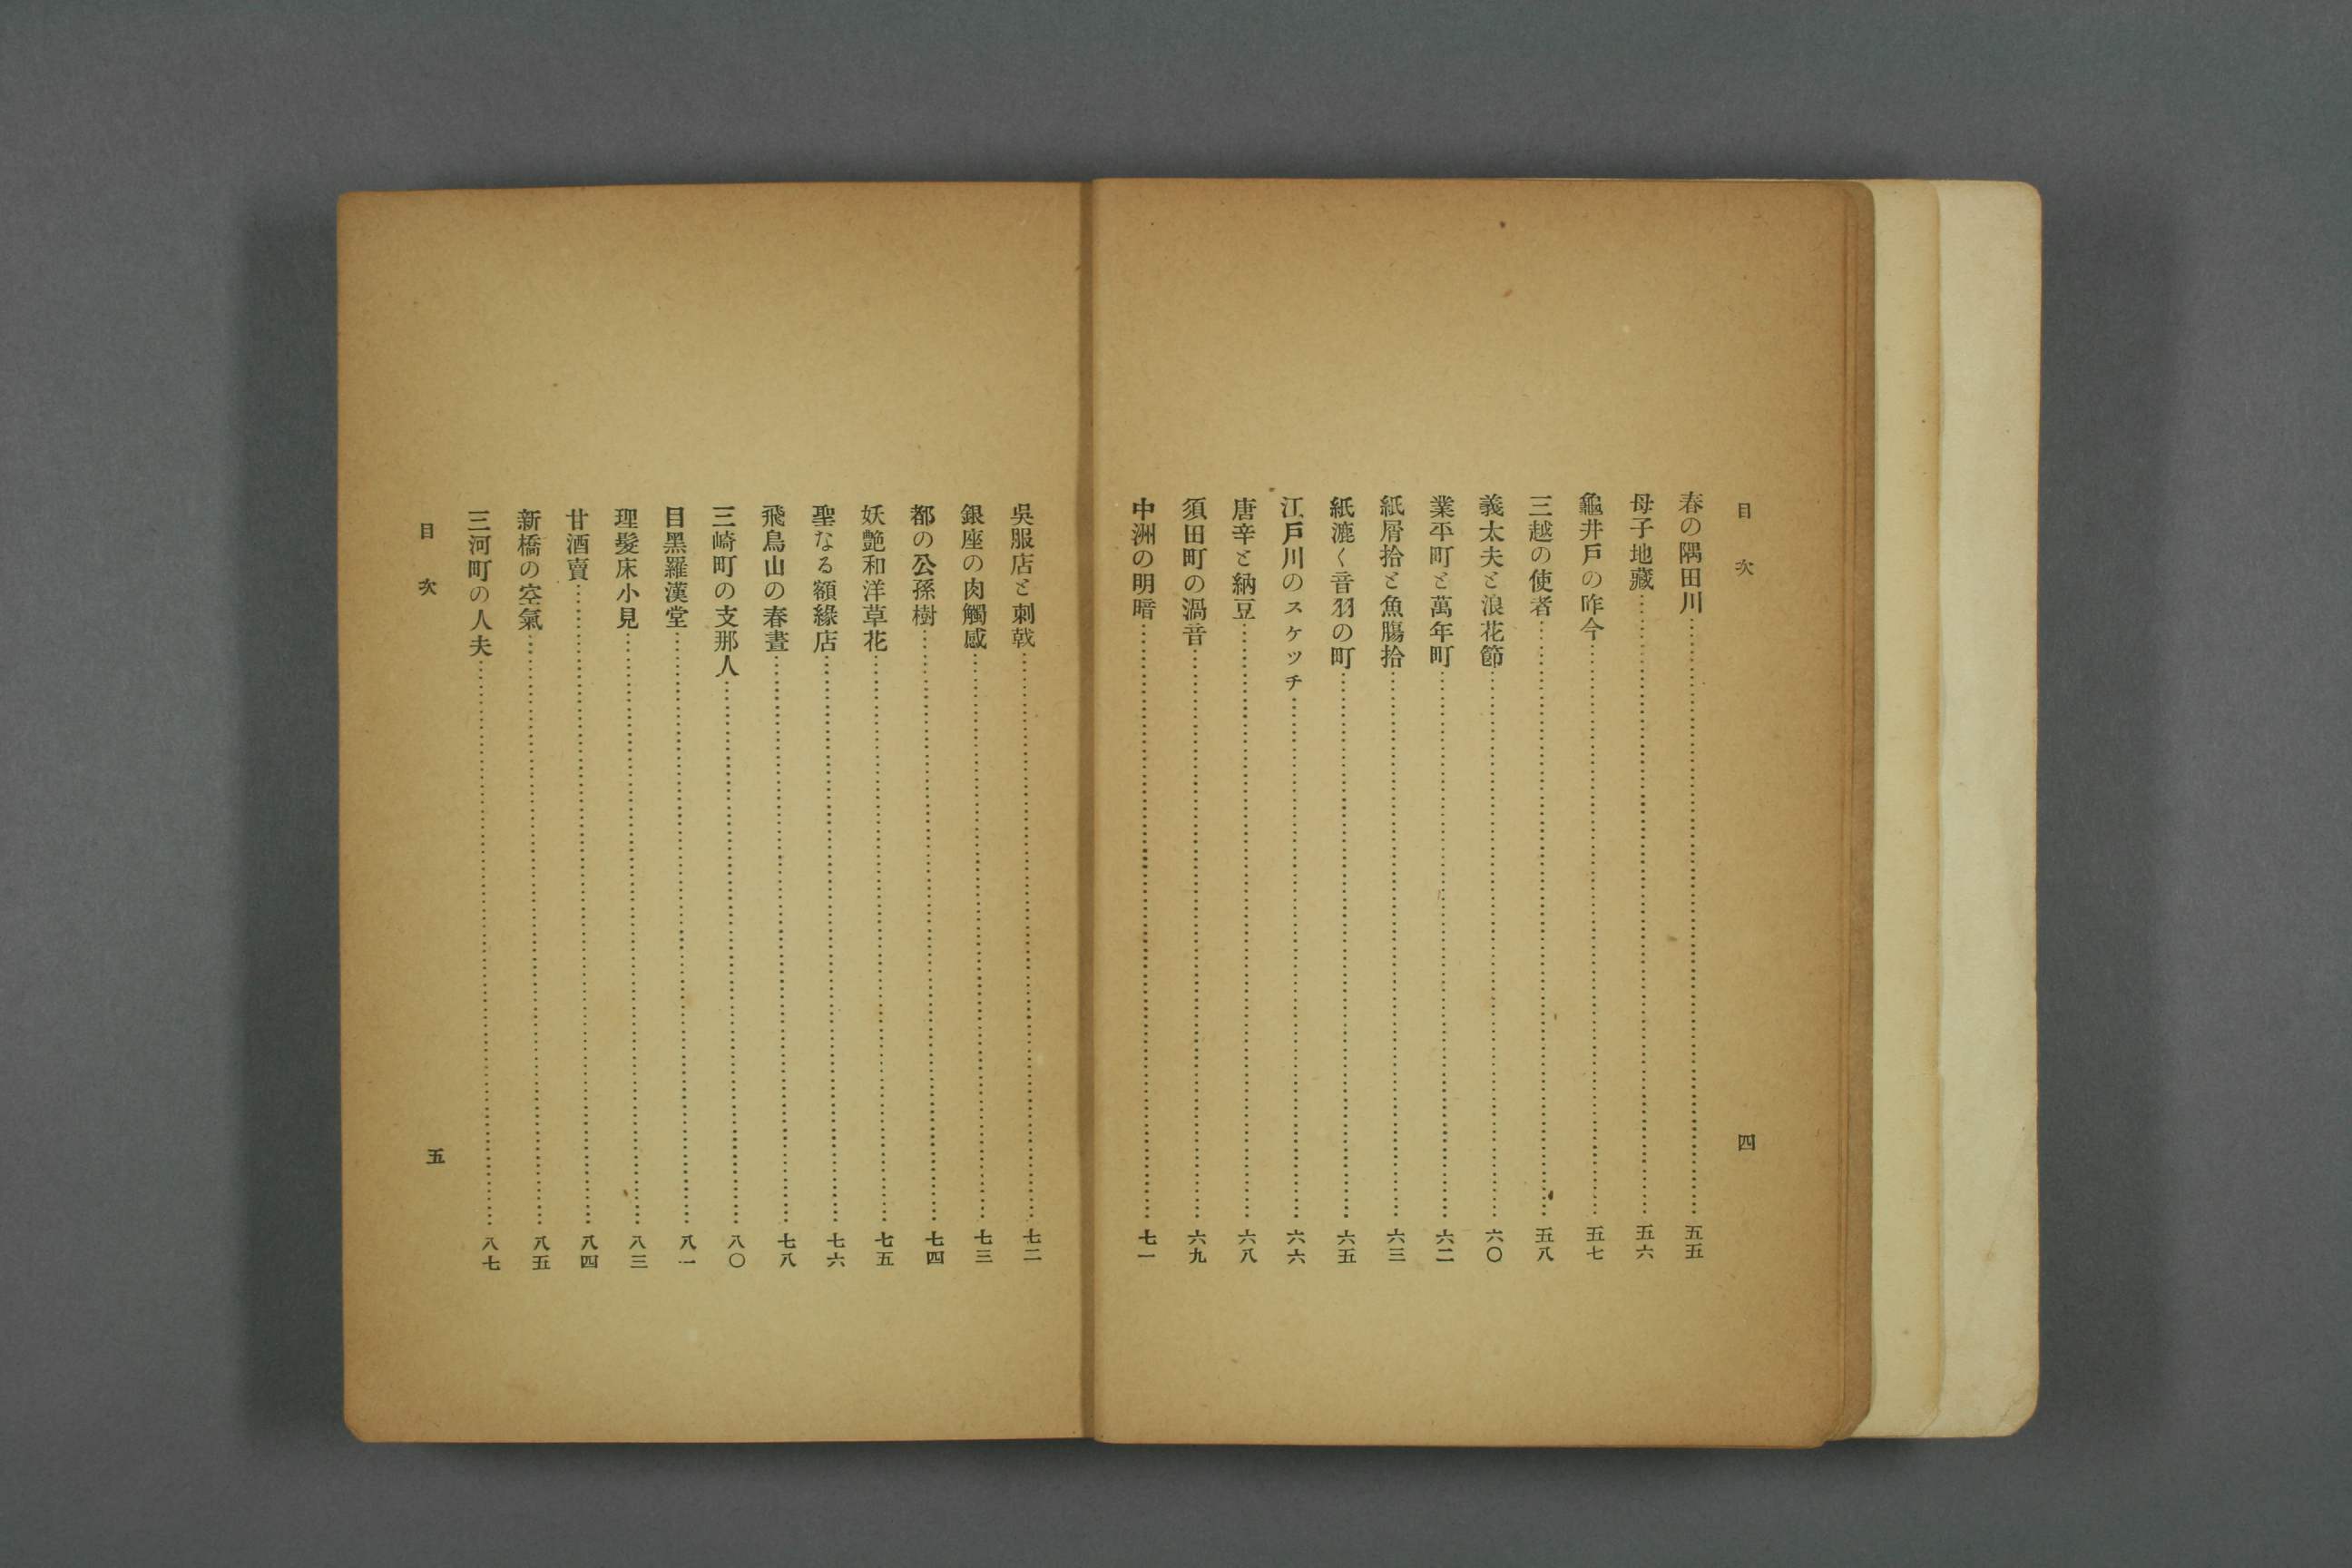 目次 四
春の隅田川……五五
母子地藏……五六
龜井戸の昨今……五七
三越の使者……五八
義太夫と浪花節……六〇
業平町と萬年町……六二
紙屑拾と魚膓拾……六三
紙漉く音羽の町……六五
江戸川のスケッチ……六六
唐辛と納豆……六八
須田町の渦音……六九
中洲の明暗……七一
吳服店と刺戟……七二
銀座の肉觸感……七三
都の公孫樹……七四
妖艶和洋草花……七五
聖なる額緣店……七六
飛鳥山の春晝……七八
三崎町の支那人……八〇
目黑羅漢堂……八一
理髮床小見……八三
甘酒賣……八四
新橋の空氣……八五
三河町の人夫……八七
目次 五